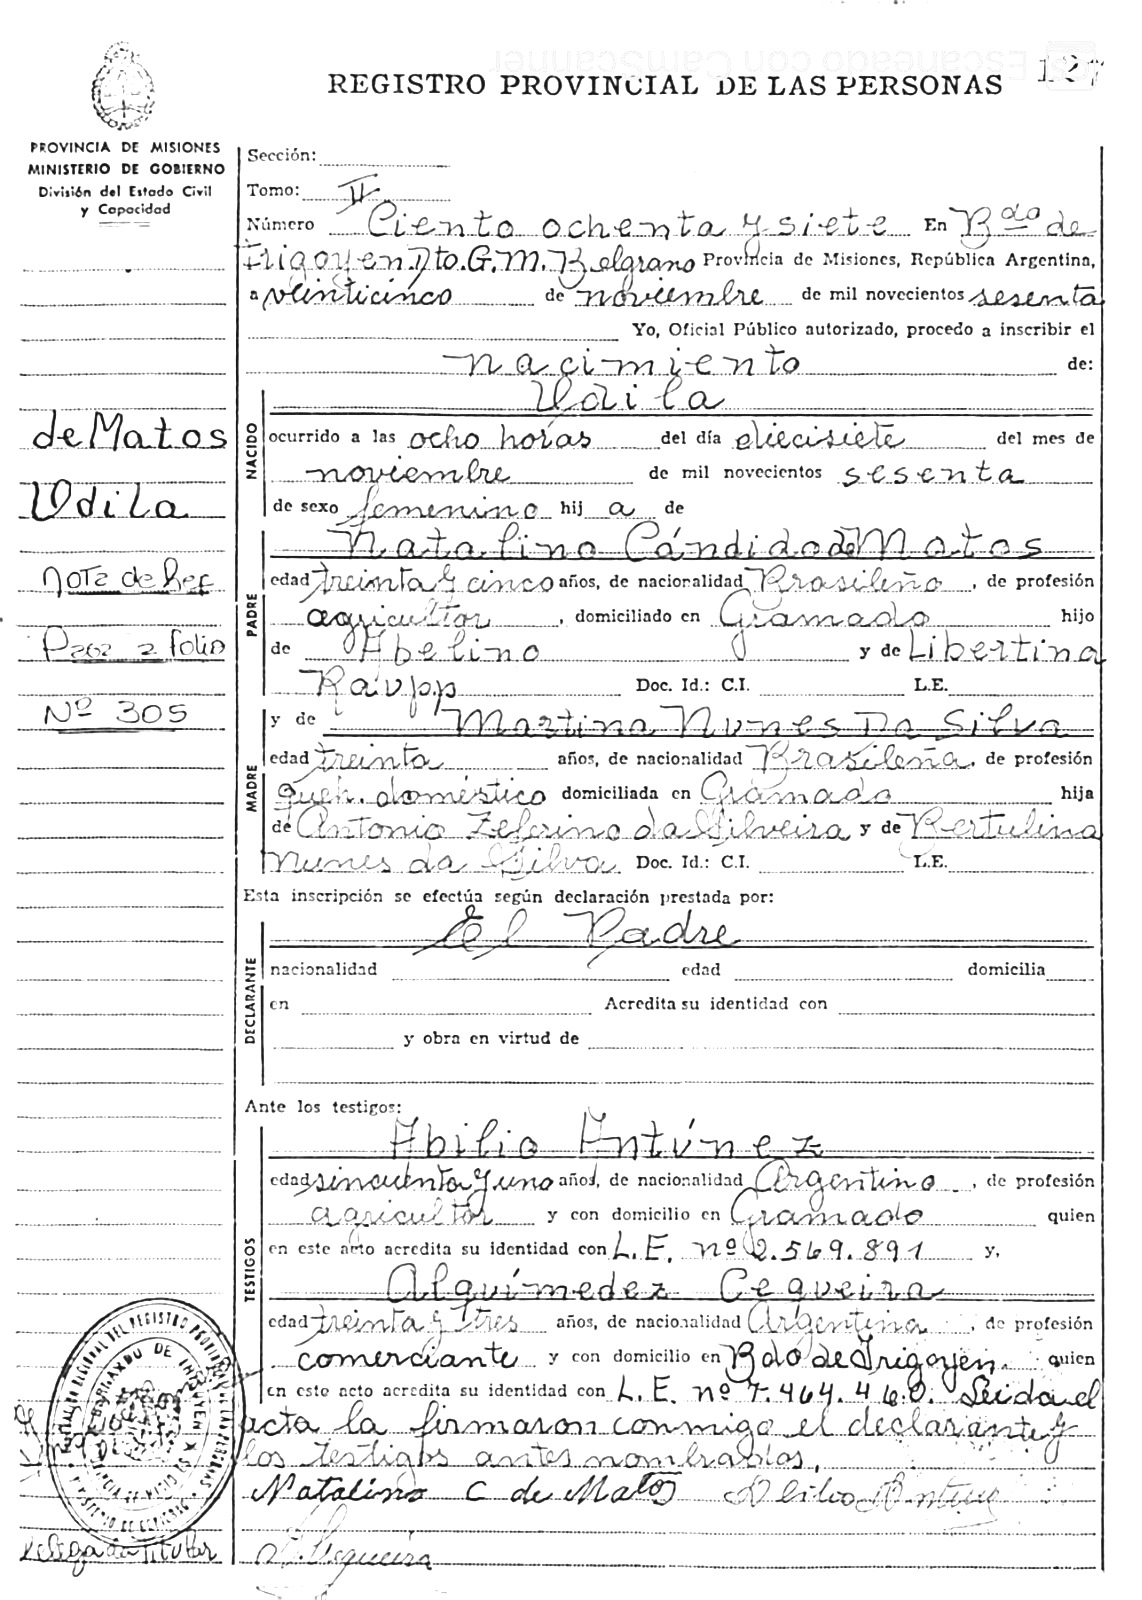 Escaneado con CamScanner
REGISTRO PROVINCIAL DE LAS PERSONAS 127
PROVINCIA DE MISIONES
MINISTERIO DE GOBIERNO
División del Estado Civil
y Capacidad
Sección:
Tomo: II
Número Ciento ochenta y siete En Bdo de
Irigoyen Dto. G. M. Belgrano Provincia de Misiones, República Argentina,
a veinticinco de noviembre de mil novecientos sesenta
Yo, Oficial Público autorizado, procedo a inscribir el
nacimiento de:
de Matos
Udila
Nota de Ref
Pasa a folio
Nº 305
NACIDO
Udila
ocurrido a las ocho horas del día diecisiete del mes de
noviembre de mil novecientos sesenta
de sexo femenino hij a de
PADRE
Natalino Cándido de Matos
edad treinta y cinco años, de nacionalidad Brasileño, de profesión
agricultor, domiciliado en Gramado hijo
de Abelino y de Libertina
Raupp Doc. Id.: C.I. L.E.
MADRE
y de Martina Nunes Da Silva
edad treinta años, de nacionalidad Brasileña, de profesión
queh. doméstico domiciliada en Gramado hija
de Antonio Zeferino da Silveira y de Bertulina
Nunes da Silva Doc. Id.: C.I. L.E.
Esta inscripción se efectúa según declaración prestada por:
DECLARANTE
El Padre
nacionalidad edad domicilia
en Acredita su identidad con
y obra en virtud de
Ante los testigos:
TESTIGOS
Abilio Antúnez
edad sincuenta y uno años, de nacionalidad Argentino, de profesión
agricultor y con domicilio en Gramado quien
en este acto acredita su identidad con L.E. nº 2.569.891 y,
Alquímedez Cequeira
edad treinta y tres años, de nacionalidad Argentina, de profesión
comerciante y con domicilio en Bdo de Irigoyen. quien
en este acto acredita su identidad con L.E. nº 7.464.460. Leida el
acta la firmaron conmigo el declarante y
los testigos antes nombrados.
Natalino C de Matos Abilio Antunez
A. Cequeira
Delegada Titular